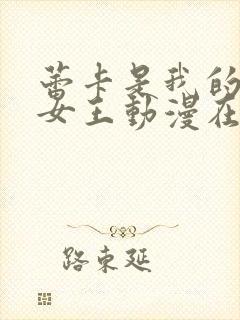 蕾卡是我的
女王動漫在
路東延